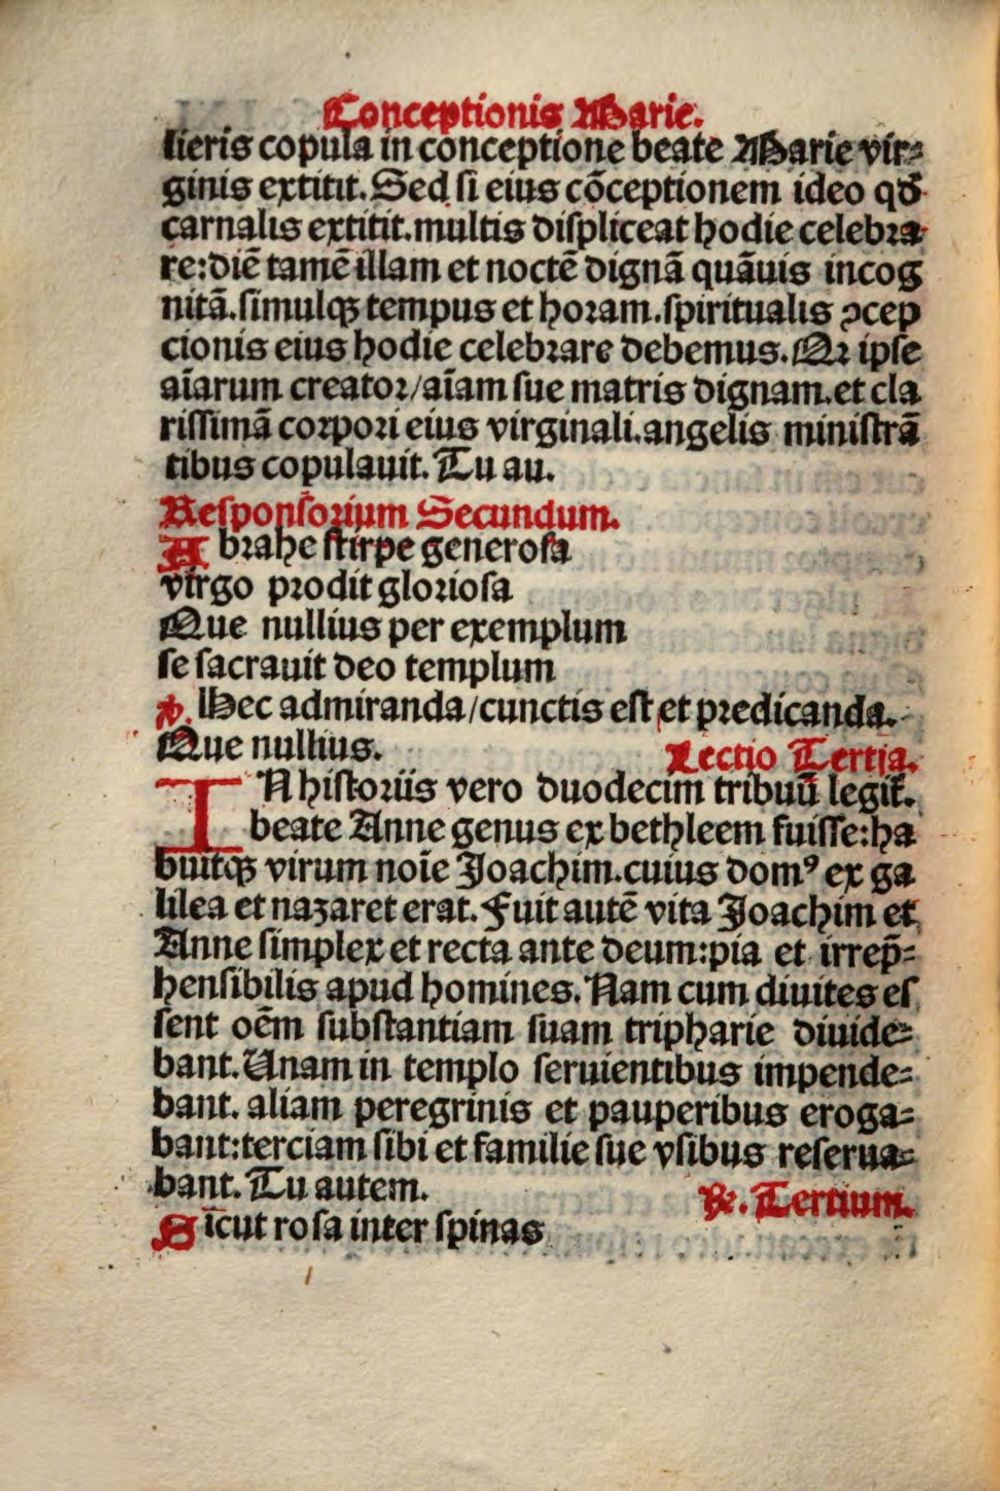 Conceptionis Marie.
lieris copula in conceptione beate Marie vir⸗
ginis extitit. Sed si eius cōceptionem ideo qđ
carnalis extitit. multis displiceat hodie celebra
re: diē tamē illam et noctē dignā quāuis incog
nitā. simulqꝫ tempus et horam. spiritualis ꝯcep
cionis eius hodie celebrare debemus. Qr ipse
aīarum creator/ aīam sue matris dignam. et cla
rissimā corpori eius virginali. angelis ministrā
tibus copulauit. Tu au.
Responsorium Secundum.
Abrahe stirpe generosa
virgo prodit gloriosa
Que nullius per exemplum
se sacrauit deo templum
℣. Hec admiranda/ cunctis est et predicanda.
Que nullius.
Lectio Tertia.
IN historiis vero duodecim tribuū legit᷑.
beate Anne genus ex bethleem fuisse: ha
buitqꝫ virum noīe Joachim. cuius domꝰ ex ga
lilea et nazaret erat. Fuit autē vita Joachim et
Anne simplex et recta ante deum: pia et irrep̄⸗
hensibilis apud homines. Nam cum diuites es
sent oēm substantiam suam tripharie diuide⸗
bant. Unam in templo seruientibus impende⸗
bant. aliam peregrinis et pauperibus eroga⸗
bant: terciam sibi et familie sue vsibus reserua⸗
bant. Tu autem.
℟. Tertium.
Sicut rosa inter spinas